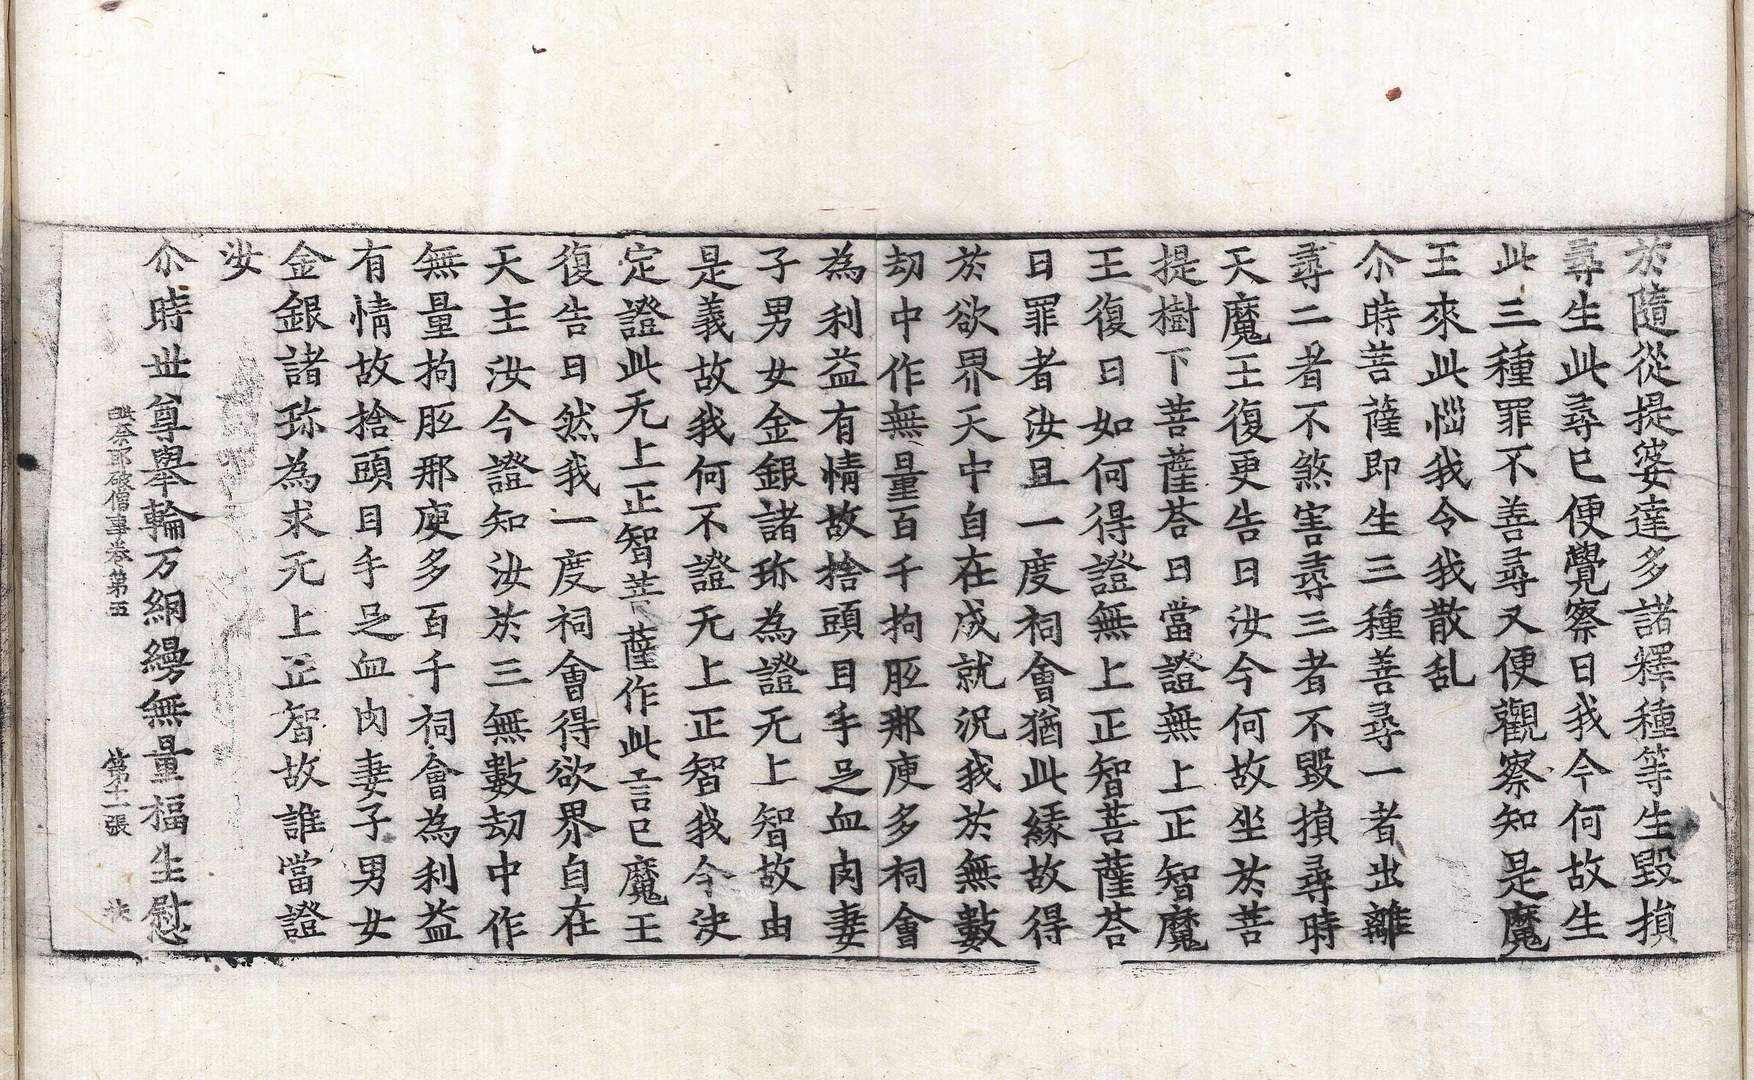 於隨從提婆達多諸釋種等生毀損
尋生此尋已便覺察曰我今何故生
此三種罪不善尋又便觀察知是魔
王來此惱我令我散乱
尒時菩薩即生三種善尋一者出離
尋二者不煞害尋三者不毀損尋時
天魔王復更告曰汝今何故坐於菩
提樹下菩薩荅曰當證無上正智魔
王復曰如何得證無上正智菩薩荅
曰罪者汝且一度祠會猶此縁故得
於欲界天中自在成就況我於無數
劫中作無量百千拘胝那庾多祠會
為利益有情故捨頭目手足血肉妻
子男女金銀諸珎為證无上智故由
是義故我何不證无上正智我今決
定證此无上正智菩薩作此言已魔王
復告曰然我一度祠會得欲界自在
天主汝今證知汝於三無數劫中作
無量拘胝那庾多百千祠會為利益
有情故捨頭目手足血肉妻子男女
金銀諸珎為求无上正智故誰當證
汝
尒時世尊舉輪万網縵無量福生慰
奈耶破僧事卷第五 第十一張